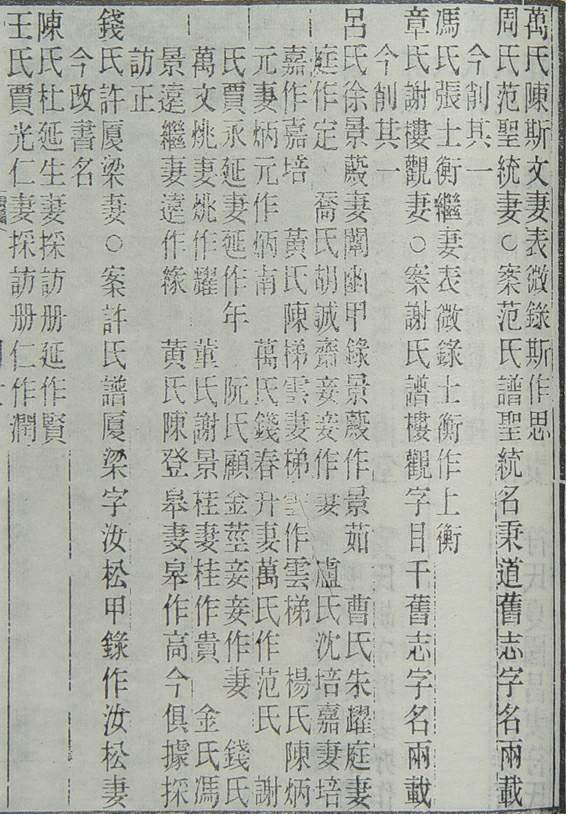 萬氏陳斯文妻表微錄斯作思
周氏范聖統妻○案范氏譜聖統名秉道舊志字名兩載
今削其一
馮氏張士衡繼妻表微錄士衡作上衡
章氏謝樓觀妻○案謝氏譜樓觀字目干舊志字名兩載
今削其一
呂氏徐景蕿妻闡幽甲錄景蕿作景茹 曹氏朱躍庭妻
庭作定 喬氏胡誠齋妾妾作妻 盧氏沈培嘉妻培
嘉作嘉培 黃氏陳梯雲妻梯雲作雲梯 楊氏陳炳
元妻炳元作炳南 萬氏錢春升妻萬氏作范氏 謝
氏賈永延妻延作年 阮氏顧金莖妾妾作妻 錢氏
萬文烑妻烑作耀 董氏謝景桂妻桂作貴 金氏馮
景遠繼妻遠作緣 黃氏陳登皋妻皋作高今俱據採
訪正
錢氏許厦梁妻○案許氏譜厦梁字汝松甲錄作汝松妻
今改書名
陳氏杜延生妻採訪册延作賢
王氏賈光仁妻採訪册仁作潤